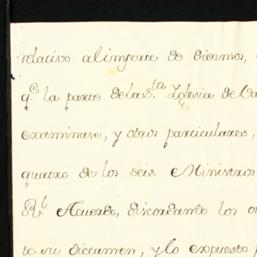 relativo al importe de diezmos,
q.e la parte de la S.ta Iglesia de Ca
examinase, y otros particulares,
quatro de los seis Ministros
R.l Acuerdo, discordando los o
te su dictamen, y lo expuesto p